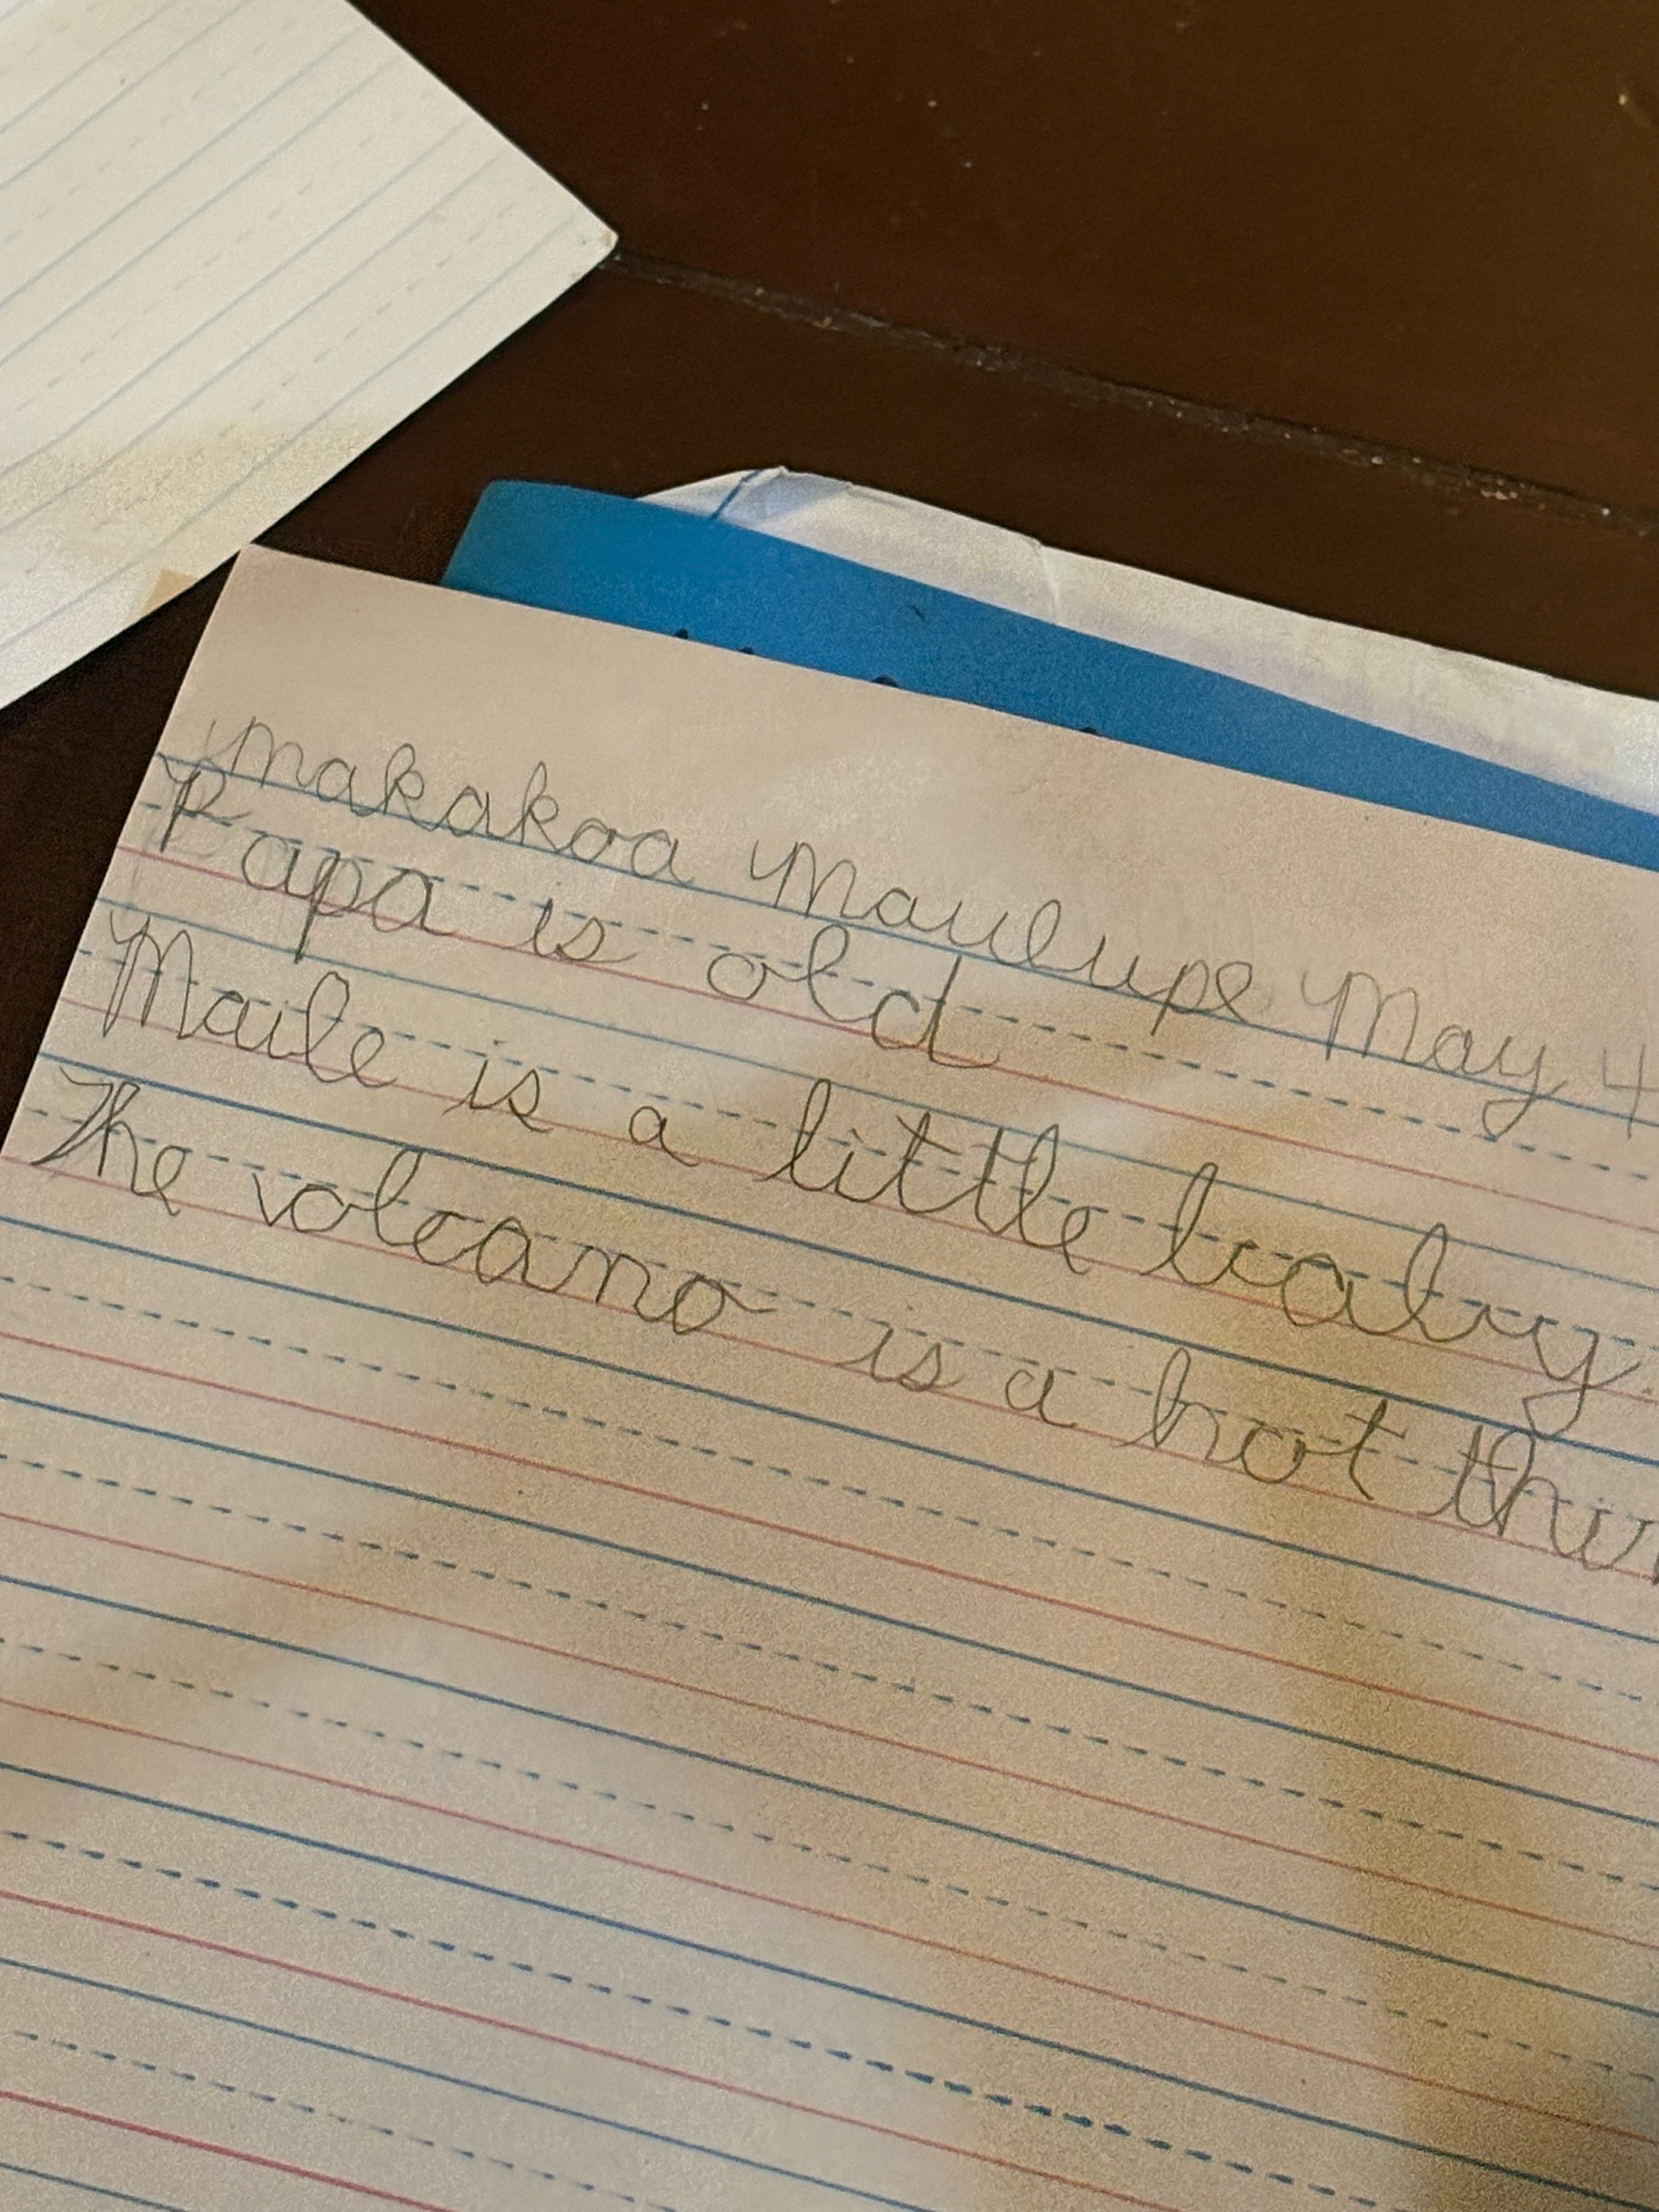 Makakoa Maulupe May 4
Papa is old
Maile is a little baby.
The volcano is a hot thin